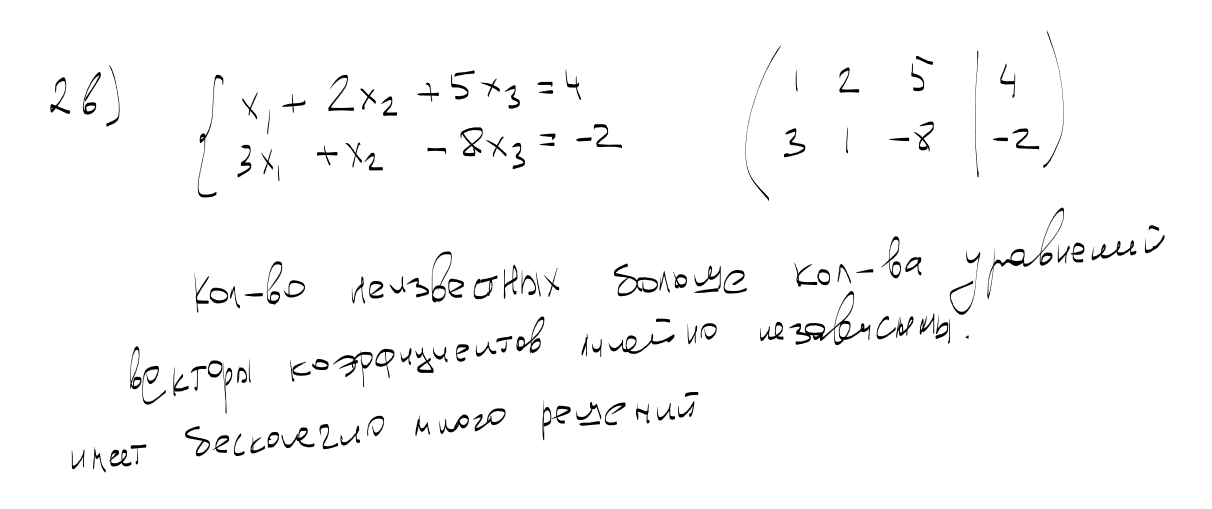 2в)
x₁ + 2x₂ + 5x₃ = 4
3x₁ + x₂ - 8x₃ = -2
1 2 5 | 4
3 1 -8 | -2
кол-во неизвестных больше кол-ва уравнений
векторы коэффициентов линейно независимы.
имеет бесконечно много решений